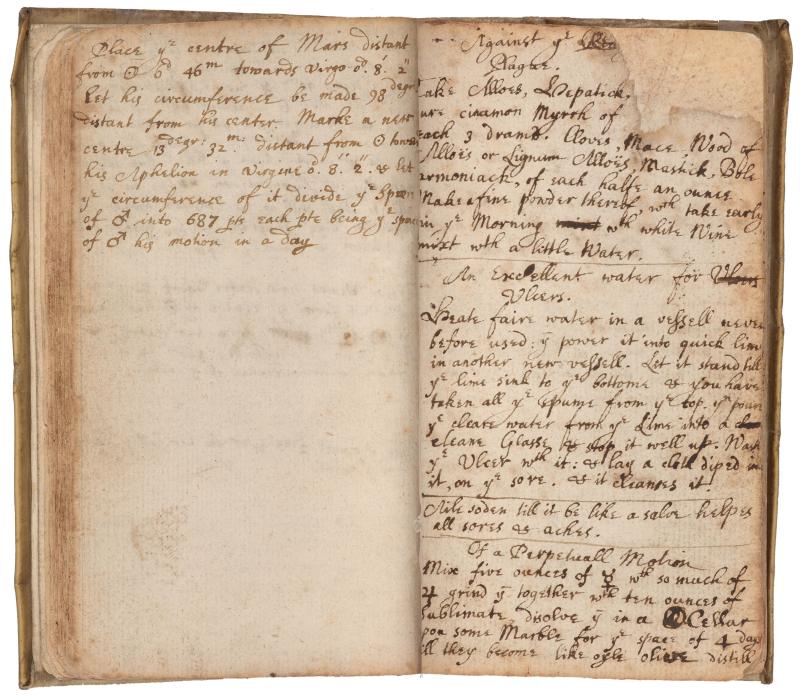 Place yᵉ centre of Mars distant
from ☉ 6ᵈ 46ᵐ towards Virgo 0ᵈ. 8'. 2''
Let his circumference be made 98 degr
distant from his center. Marke a new
centre 13 degr: 32 m: distant from ☉ towar
his Aphelion in Virgine 0ᵈ. 8'. 2''. & let
yᵉ circumference of it divide yᵉ Spær
of ♂ into 687 pts each pte being yᵉ space
of ♂ his motion in a day
Against yᵉ
Plague.
Take Alloes, Hepatick.
ure cinamon Myrrh of
each 3 dramᵉ. Cloves, Mace, Wood of
Alloës or Lignum Alloës, Mastick, Bole
ermoniack, of each halfe an ounce
Make a fine powder thereof wᶜʰ take early
in yᵉ Morning mixt wᵗʰ white Wine
mixt wth a little Water.
An Excellent water for Ulcers
Ulcers.
Heate faire water in a vessell never
before used: yⁿ power it into quick lime
in another new vessell. Let it stand till
yᵉ lime sink to yᵉ bottome & you have
taken all yᵉ spume from yᵉ top. yⁿ pour
yᵉ cleare water from yᵉ Lime into a
cleane Glasse & stop it well up. Wash
yᵉ Ulcer wᵗʰ it: & lay a cloth diped in
it, on yᵉ sore. & it cleanses it.
Aile soden till it be like a salve helpes
all sores & aches.
Of a Perpetuall Motion
Mix five ounces of ☿ wᵗʰ so much of
♃ grind yᵐ together wᵗʰ ten ounces of
sublimate disolve yᵐ in a Cellar
pon some Marble for yᵉ space of 4 days
ill they become like oyle olive distill